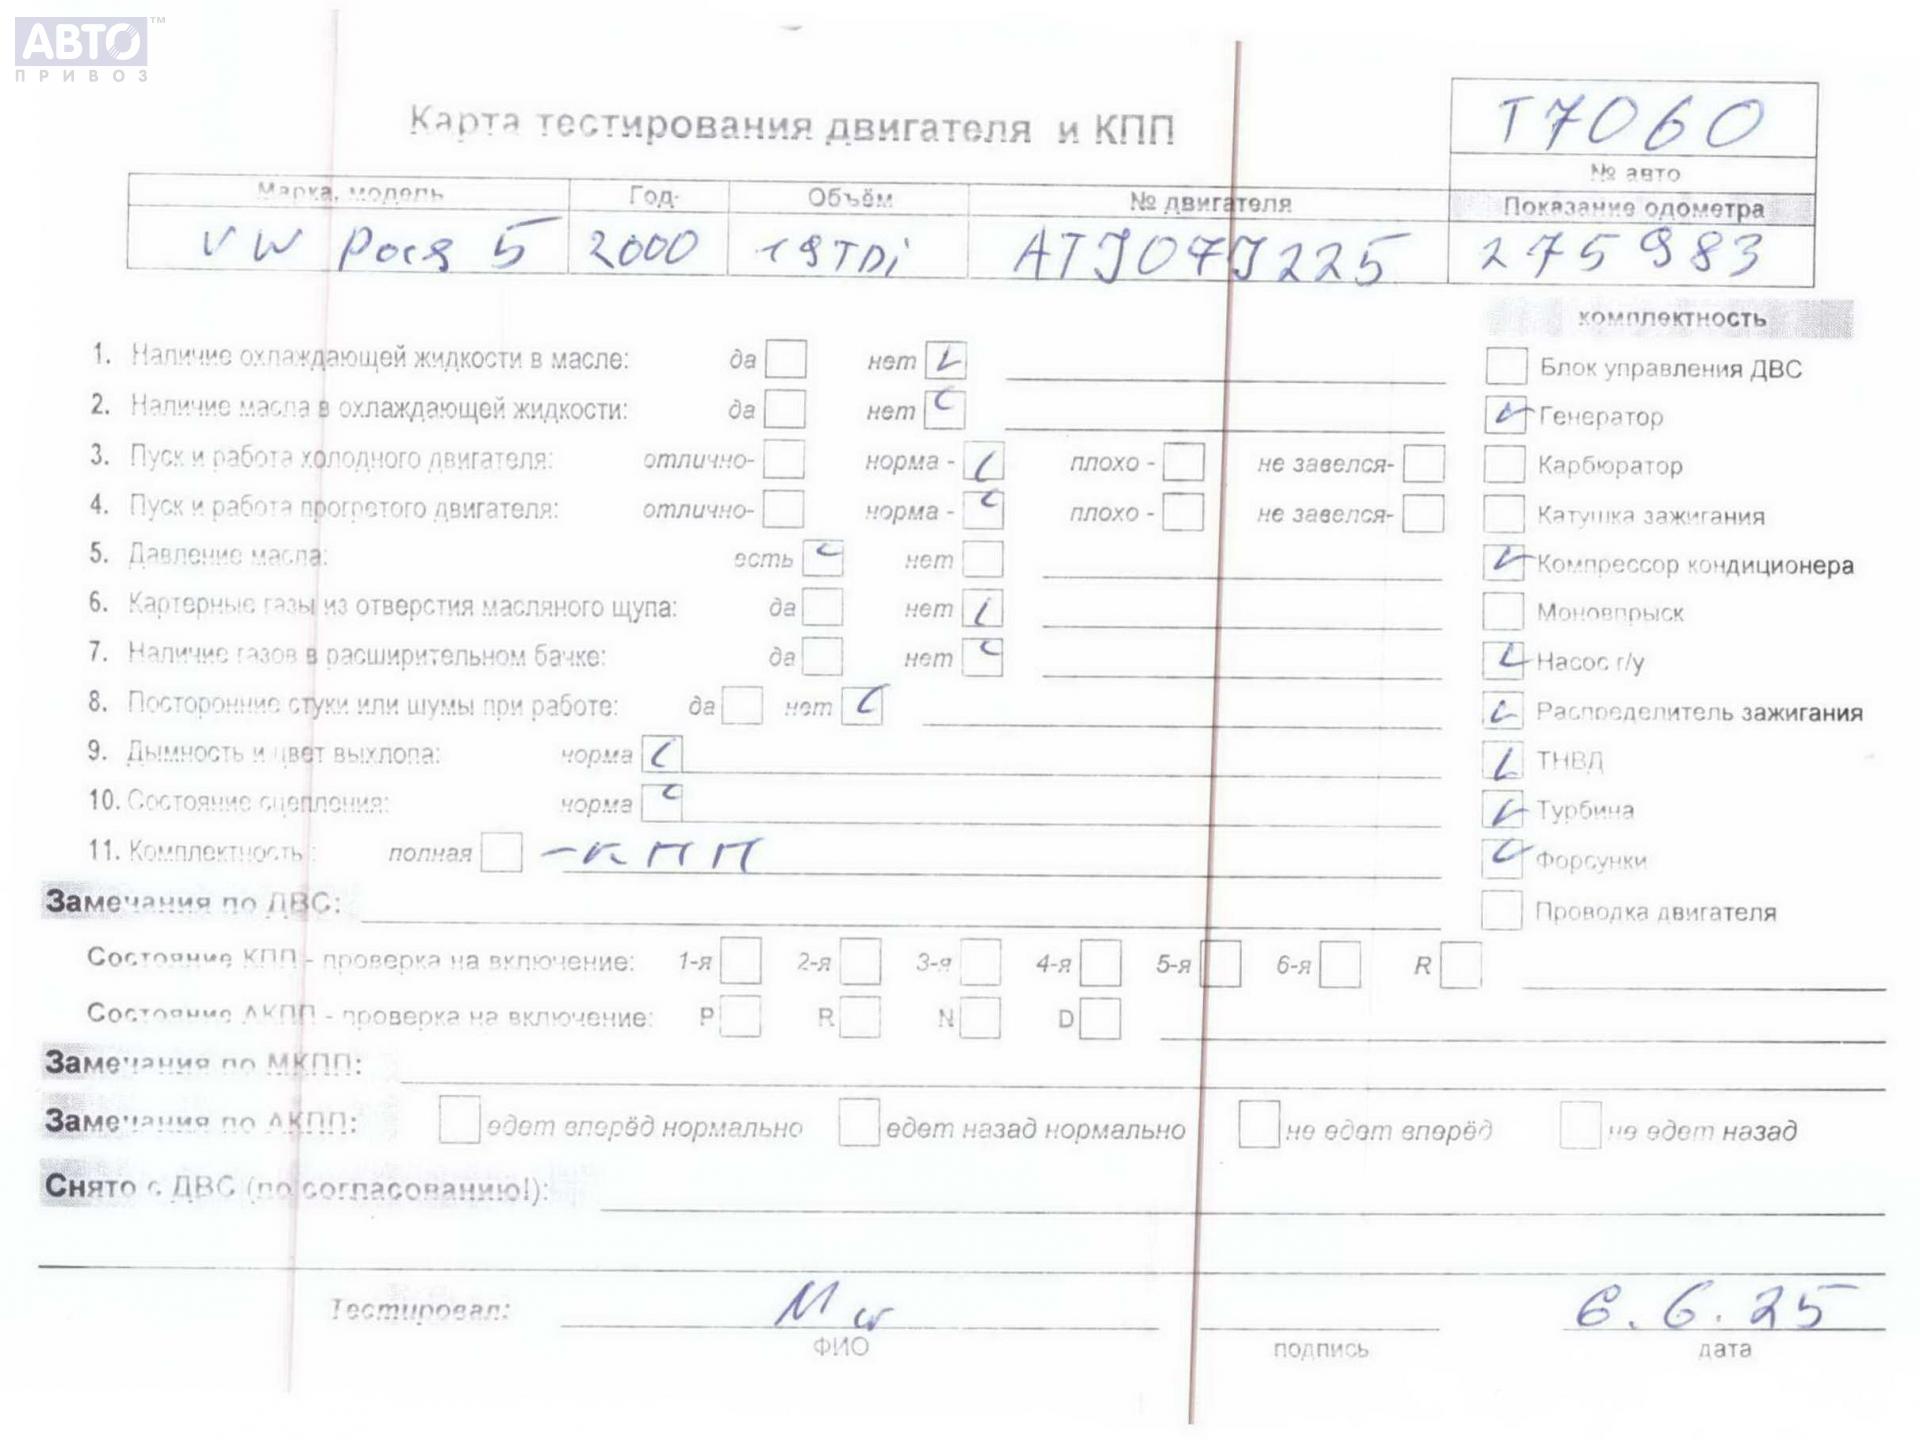 АВТО™
ПРИВОЗ
Карта тестирования двигателя и КПП
T7060
№ авто
Марка, модель Год- Объём № двигателя Показание одометра
VW 5 2000 19TDi ATJ07J225 275983
комплектность
1. Наличие охлаждающей жидкости в масле: да нет
Блок управления ДВС
2. Наличие масла в охлаждающей жидкости: да нет
Генератор
3. Пуск и работа холодного двигателя: отлично- норма - плохо - не завелся-
Карбюратор
4. Пуск и работа прогретого двигателя: отлично- норма - плохо - не завелся-
Катушка зажигания
5. Давление масла: есть нет
Компрессор кондиционера
6. Картерные газы из отверстия масляного щупа: да нет
Моновпрыск
7. Наличие газов в расширительном бачке: да нет
Насос г/у
8. Посторонние стуки или шумы при работе: да нет
Распределитель зажигания
9. Дымность и цвет выхлопа: норма
ТНВД
10. Состояние сцепления: норма
Турбина
11. Комплектность: полная -КПП
Форсунки
Замечания по ДВС:
Проводка двигателя
Состояние КПП - проверка на включение: 1-я 2-я 3-я 4-я 5-я 6-я R
Состояние АКПП - проверка на включение: P R N D
Замечания по МКПП:
Замечания по АКПП: едет вперёд нормально едет назад нормально не едет вперёд не едет назад
Снято с ДВС (по согласованию!):
Тестировал: 6.6.25
ФИО подпись дата